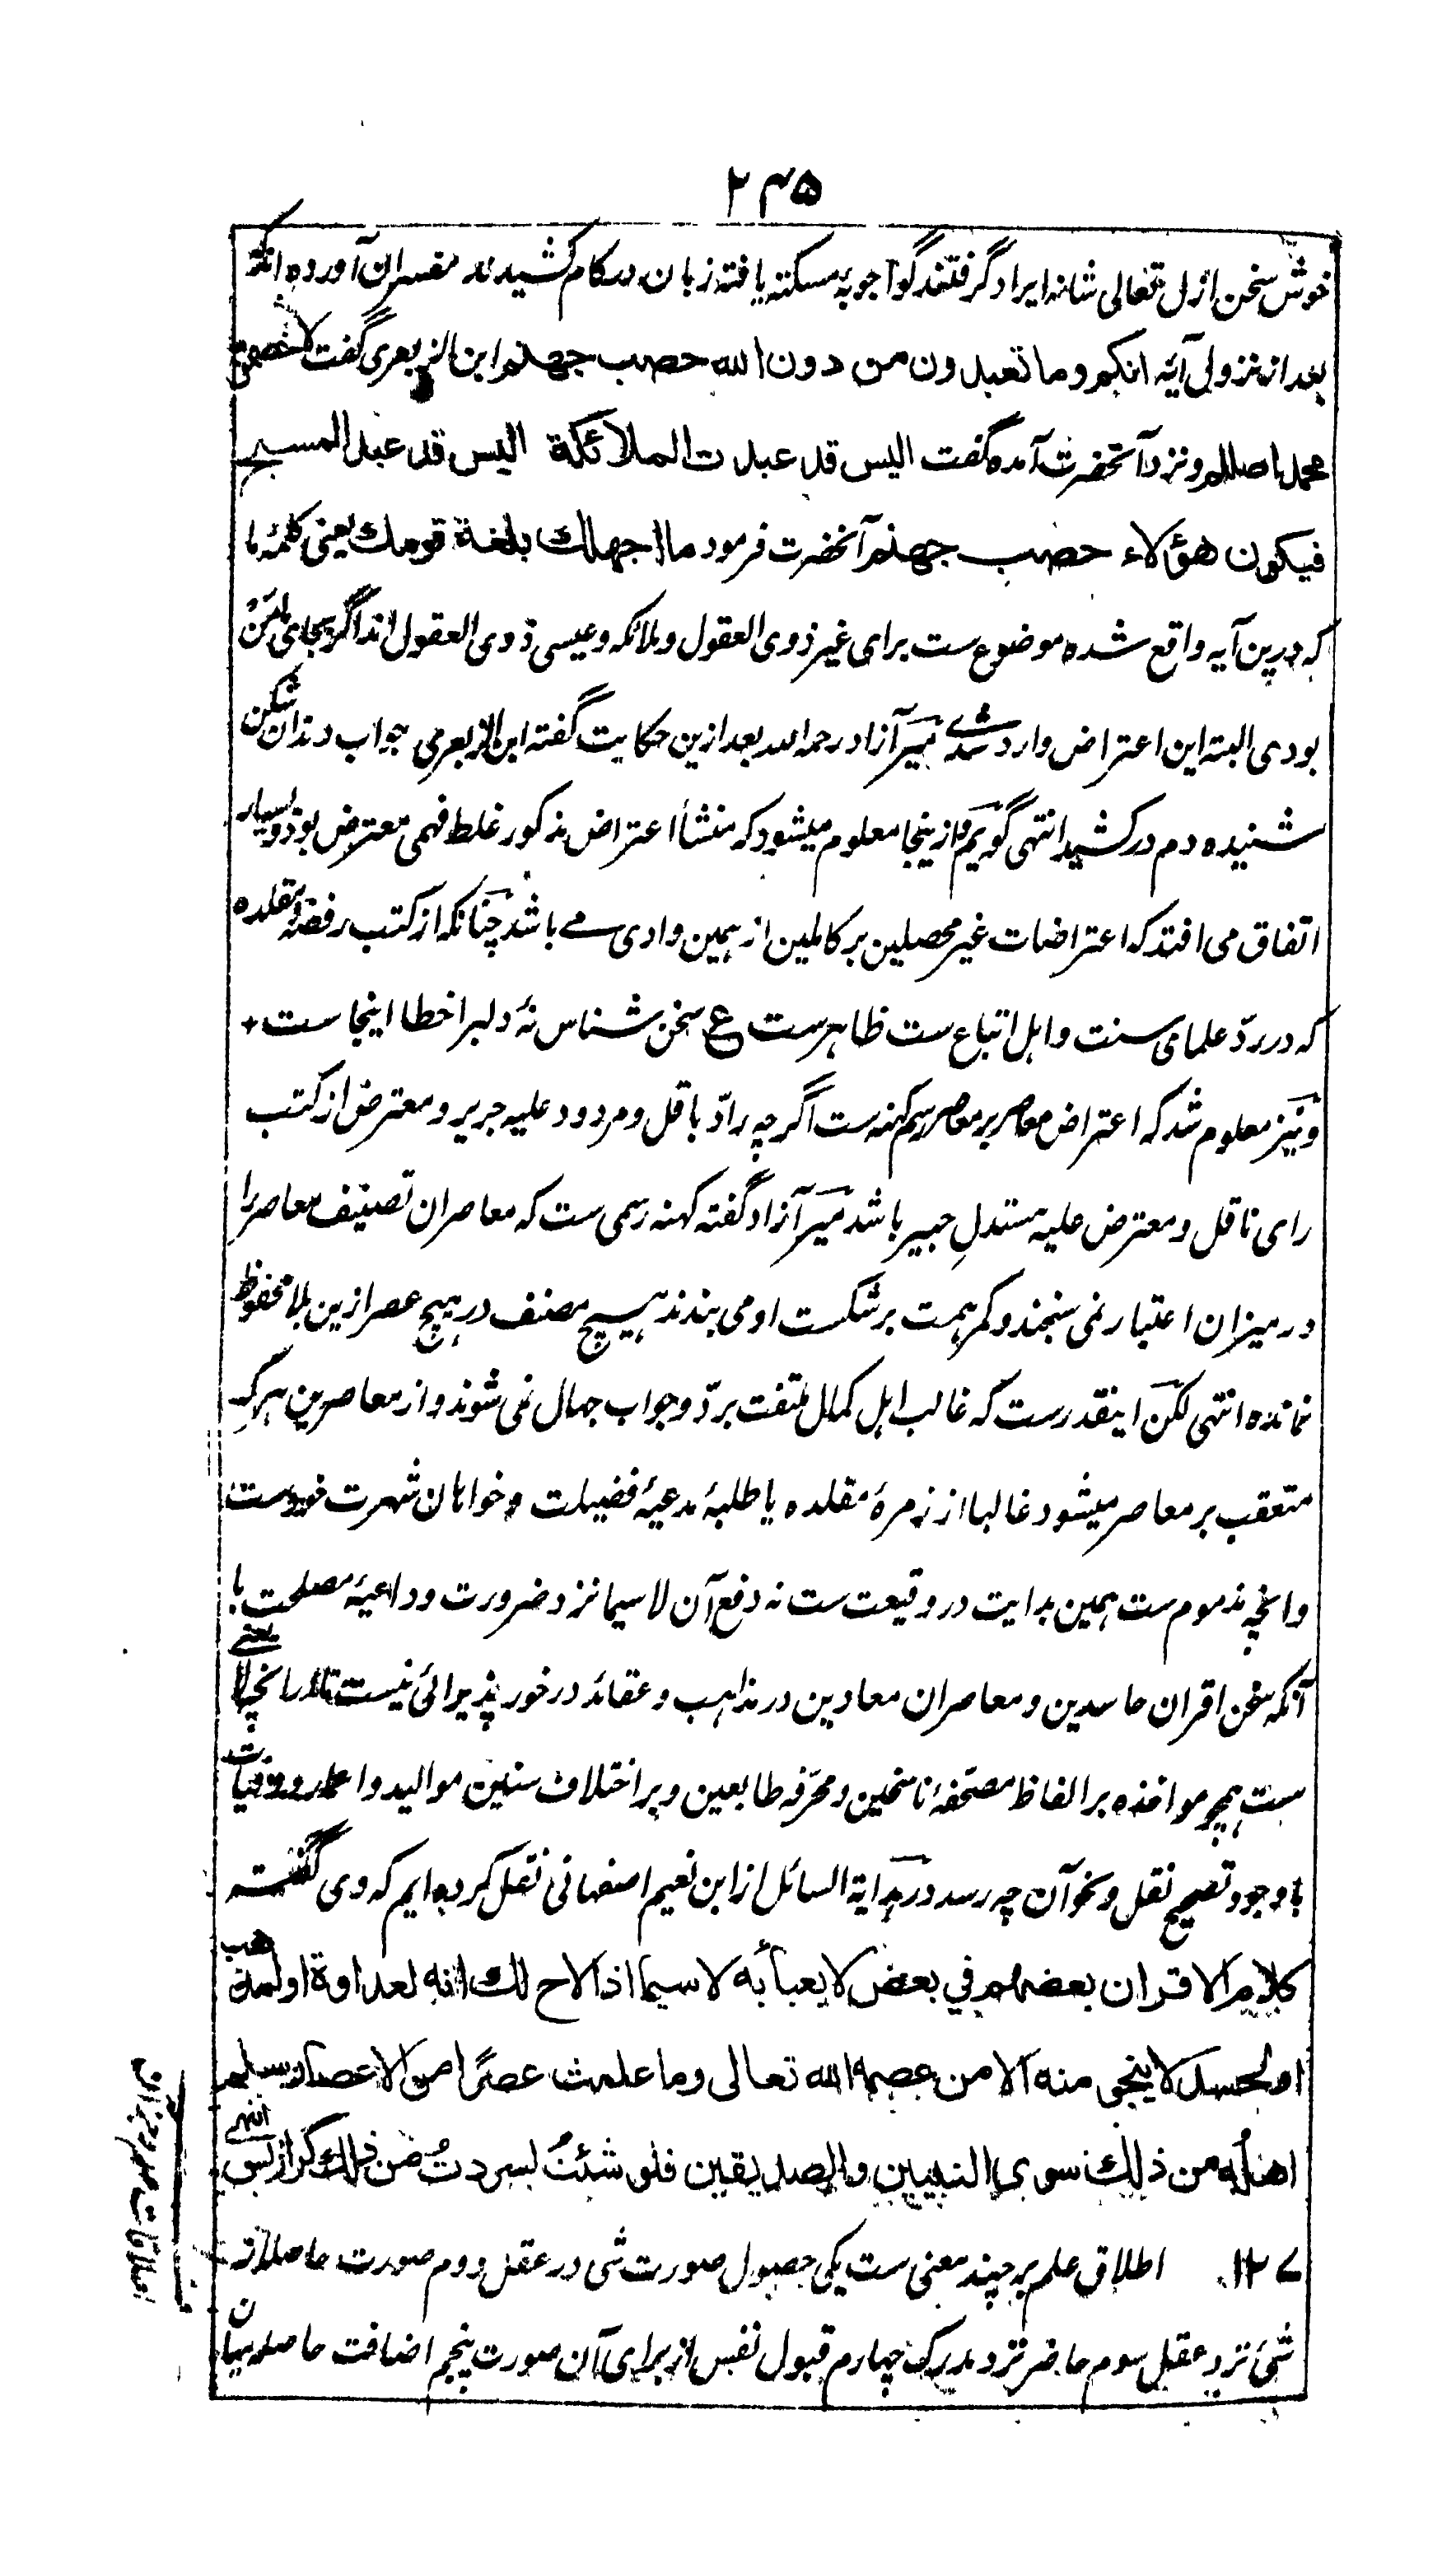 ۲۴۵
خوش سخن ازل تعالی شانه ایراد گرفتند گو اجوبهٔ مسکته یافته زبان در کام کشیدند مفسران آورده اند که
بعد از نزول آیه انکم وما تعبدون من دون الله حصب جهنم ابن الزبعری گفت لاخصمن
محمدا صللم و نزد آنحضرت آمده گفت الیس قد عبدت الملائکة الیس قد عبد المسیح
فیکون هؤلاء حصب جهنم آنحضرت فرمود ما اجهلك بلغة قومك یعنی کلمهٔ ما
که درین آیه واقع شده موضوع ست برای غیر ذوی العقول و ملائکه و عیسی ذوی العقول اند اگر بجای ما من
بودی البته این اعتراض وارد شدے میر آزاد رحمه الله بعد ازین حکایت گفته ابن الزبعری جواب دندان شکن
شنیده دم در کشید انتهی گویم و ازینجا معلوم میشود که منشأ اعتراض مذکور غلط فهمی معترض بود و بسیار
اتفاق می افتد که اعتراضات غیر محصلین بر کاملین از همین وادی مے باشد چنانکه از کتب رفضه و مقلده
که در ردّ علمای سنت و اهل اتباع ست ظاهرست ع سخن شناس نهٔ دلبرا خطا اینجا ست +
و نیز معلوم شد که اعتراض معاصر بر معاصر رسم کهنه ست اگر چه رادّ باقل و مردود علیه جریر و معترض از کتب
رای ناقل و معترض علیه مستدلِ خبیر باشد میر آزاد گفته کهنه رسمی ست که معاصران تصنیف معاصر را
در میزان اعتبار نمی سنجند و کمر همت بر شکست او می بندند هیچ مصنف در هیچ عصر ازین بلا محفوظ
نمانده انتهی لکن اینقدرست که غالب اهل کمال ملتفت بردّ و جواب جهال نمی شوند و از معاصرین هر که
متعقب بر معاصر میشود غالبا از زمرهٔ مقلده یا طلبهٔ مدعیهٔ فضیلت و خواهان شهرت خودست
و انچه مذموم ست همین بدایت در وقیعت ست نه دفع آن لاسیما نزد ضرورت و داعیهٔ مصلحت با
آنکه سخن اقران حاسدین و معاصران معادین در مذاهب و عقائد درخور پذیرائی نیست تا در انچه لا یعنے
ست همچو مواخذه بر الفاظ مصحفهٔ ناسخین و محرّفه طابعین و بر اختلاف سنین موالید و اعمار و وفیات
با وجود تصحیح نقل و نحو آن چه رسد در هدایة السائل از ابن نعیم اصفهانی نقل کرده ایم که وی گفته
کلام الاقران بعضهم في بعض لا یعبأ به لا سیما اذا لاح لك انه لعداوة او لمذهب
او لحسد لا ینجی منه الا من عصمه الله تعالی وما علمت عصرًا من الاعصار سلم
اهله من ذلك سوی النبیین والصدیقین فلو شئتُ لسردتُ من ذلك کراریس انتهی
۱۲۷ اطلاق علم بر چند معنی ست یکی حصول صورت شی در عقل دوم صورت حاصله از
شیٔ نزد عقل سوم حاضر نزد مدرک چهارم قبول نفس از برای آن صورت پنجم اضافت حاصله میان